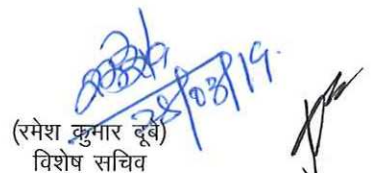 28/03/19.
(रमेश कुमार दूबे)
विशेष सचिव